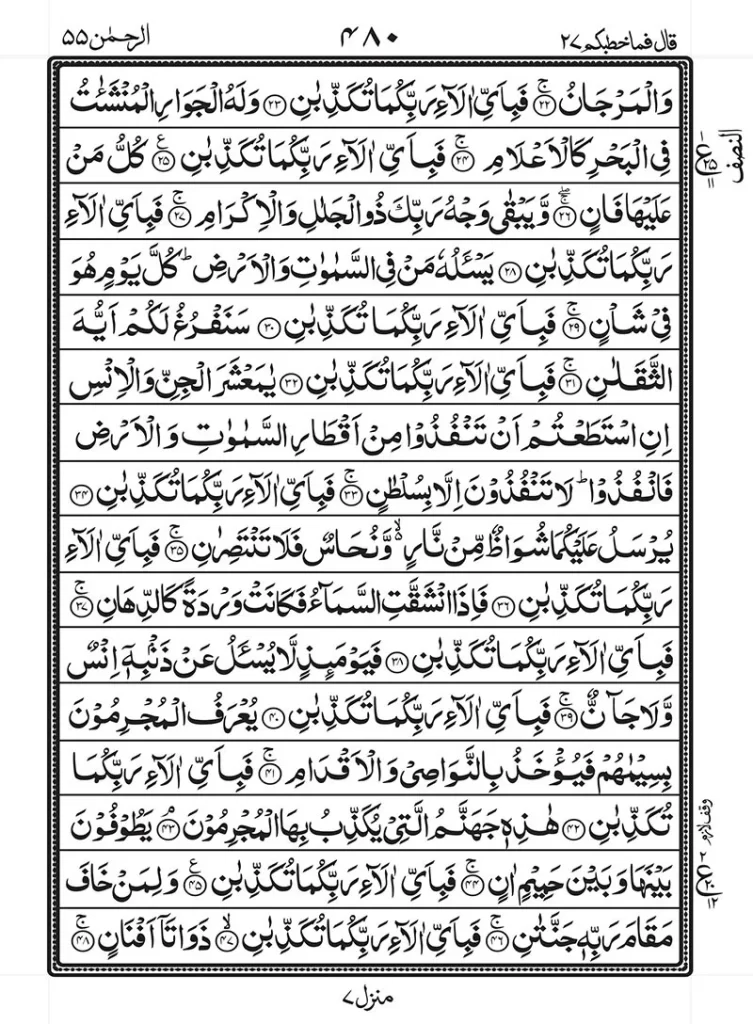 قال فما خطبكم ۲۷
۴۸۰
الرحمٰن ۵۵
وَالۡمَرۡجَانُ ۚ‏ ﴿۲۲﴾ فَبِاَىِّ اٰلَاۤءِ رَبِّكُمَا تُكَذِّبٰنِ‏ ﴿۲۳﴾ وَلَهُ الۡجَوَارِ الۡمُنۡشَئٰتُ
فِى الۡبَحۡرِ كَالۡاَعۡلَامِ‌ۚ‏ ﴿۲۴﴾ فَبِاَىِّ اٰلَاۤءِ رَبِّكُمَا تُكَذِّبٰنِ ع‏ ﴿۲۵﴾ كُلُّ مَنۡ
عَلَيۡهَا فَانٍ‌ ۖۚ‏ ﴿۲۶﴾ وَّيَبۡقٰى وَجۡهُ رَبِّكَ ذُو الۡجَلٰلِ وَالۡاِكۡرَامِ‌ۚ‏ ﴿۲۷﴾ فَبِاَىِّ اٰلَاۤءِ
رَبِّكُمَا تُكَذِّبٰنِ‏ ﴿۲۸﴾ يَسۡئَلُهٗ مَنۡ فِى السَّمٰوٰتِ وَالۡاَرۡضِ‌ؕ كُلَّ يَوۡمٍ هُوَ
فِىۡ شَاۡنٍ‌ۚ‏ ﴿۲۹﴾ فَبِاَىِّ اٰلَاۤءِ رَبِّكُمَا تُكَذِّبٰنِ‏ ﴿۳۰﴾ سَنَفۡرُغُ لَكُمۡ اَيُّهَ
الثَّقَلٰنِ‌ۚ‏ ﴿۳۱﴾ فَبِاَىِّ اٰلَاۤءِ رَبِّكُمَا تُكَذِّبٰنِ‏ ﴿۳۲﴾ يٰمَعۡشَرَ الۡجِنِّ وَالۡاِنۡسِ
اِنِ اسۡتَطَعۡتُمۡ اَنۡ تَنۡفُذُوۡا مِنۡ اَقۡطَارِ السَّمٰوٰتِ وَالۡاَرۡضِ
فَانْفُذُوۡا‌ؕ لَا تَنۡفُذُوۡنَ اِلَّا بِسُلۡطٰنٍ‌ۚ‏ ﴿۳۳﴾ فَبِاَىِّ اٰلَاۤءِ رَبِّكُمَا تُكَذِّبٰنِ‏ ﴿۳۴﴾
يُرۡسَلُ عَلَيۡكُمَا شُوَاظٌ مِّنۡ نَّارٍ ۙ وَّنُحَاسٌ فَلَا تَنۡتَصِرٰنِ‌ۚ‏ ﴿۳۵﴾ فَبِاَىِّ اٰلَاۤءِ
رَبِّكُمَا تُكَذِّبٰنِ‏ ﴿۳۶﴾ فَاِذَا انْشَقَّتِ السَّمَآءُ فَكَانَتۡ وَرۡدَةً كَالدِّهَانِ‌ۚ‏ ﴿۳۷﴾
فَبِاَىِّ اٰلَاۤءِ رَبِّكُمَا تُكَذِّبٰنِ‏ ﴿۳۸﴾ فَيَوۡمَئِذٍ لَّا يُسۡئَلُ عَنۡ ذَنۡۢبِهٖۤ اِنۡسٌ
وَّلَا جَآنٌّ‌ۚ‏ ﴿۳۹﴾ فَبِاَىِّ اٰلَاۤءِ رَبِّكُمَا تُكَذِّبٰنِ‏ ﴿۴۰﴾ يُعۡرَفُ الۡمُجۡرِمُوۡنَ
بِسِيۡمٰهُمۡ فَيُؤۡخَذُ بِالنَّوَاصِىۡ وَالۡاَقۡدَامِ‌ۚ‏ ﴿۴۱﴾ فَبِاَىِّ اٰلَاۤءِ رَبِّكُمَا
تُكَذِّبٰنِ‏ ﴿۴۲﴾ هٰذِهٖ جَهَنَّمُ الَّتِىۡ يُكَذِّبُ بِهَا الۡمُجۡرِمُوۡنَ‌ۘ‏ ﴿۴۳﴾ يَطُوۡفُوۡنَ
بَيۡنَهَا وَبَيۡنَ حَمِيۡمٍ اٰنٍ‌ۚ‏ ﴿۴۴﴾ فَبِاَىِّ اٰلَاۤءِ رَبِّكُمَا تُكَذِّبٰنِ ع‏ ﴿۴۵﴾ وَلِمَنۡ خَافَ
مَقَامَ رَبِّهٖ جَنَّتٰنِ‌ۚ‏ ﴿۴۶﴾ فَبِاَىِّ اٰلَاۤءِ رَبِّكُمَا تُكَذِّبٰنِۙ‏ ﴿۴۷﴾ ذَوَاتَاۤ اَفۡنَانٍ‌ۚ‏ ﴿۴۸﴾
النصف
وقف لازم
منزل ۷